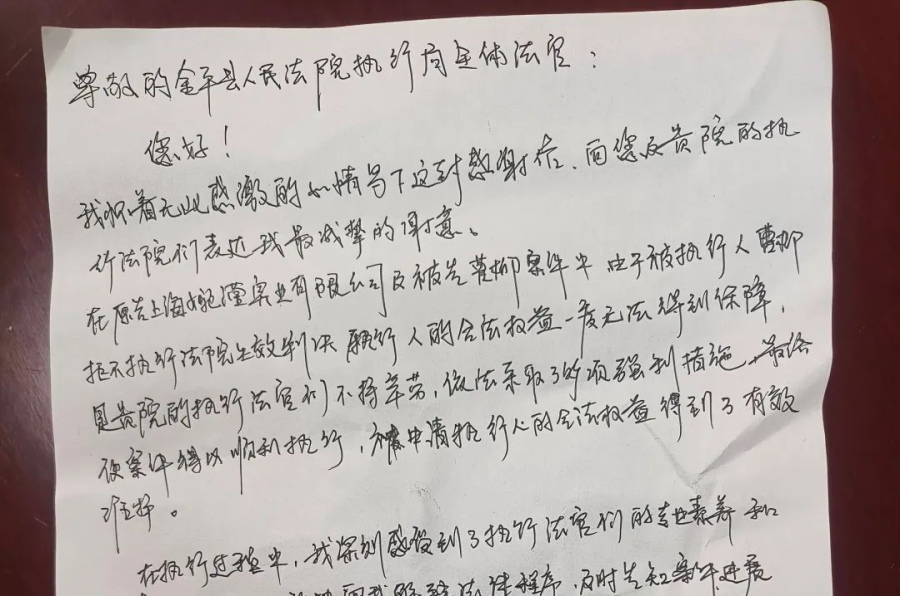 尊敬的金平县人民法院执行局全体法官:
您好!
我怀着无比感激的心情写下这封感谢信、向您及贵院的执
行法院们表达我最诚挚的谢意。
在原告上海婉滢实业有限公司及被告曹柳案件中 由于被执行人曹柳
拒不执行法院生效判决 申请执行人的合法权益一度无法得到保障,
是贵院的执行法官们不辞辛劳,依法采取了各项强制措施,最终
使案件得以顺利执行,被申请执行人的合法权益得到了有效
维护。
在执行过程中,我深刻感受到了执行法官们的专业素养和
法律程序,及时告知案件进展